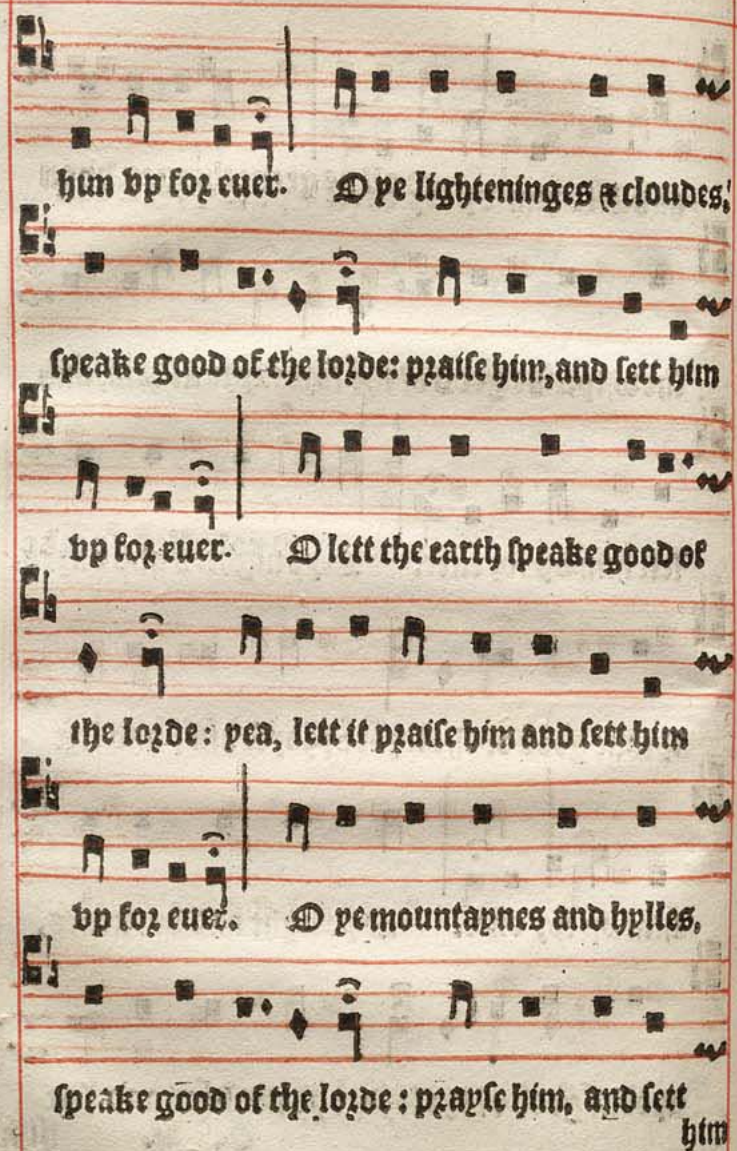 him vp for euer. O ye lighteninges & cloudes,
speake good of the lorde: praise him, and sett him
vp for euer. O lett the earth speake good of
the lorde: yea, lett it praise him and sett him
vp for euer. O ye mountaynes and hylles,
speake good of the lorde: prayse him, and sett
him